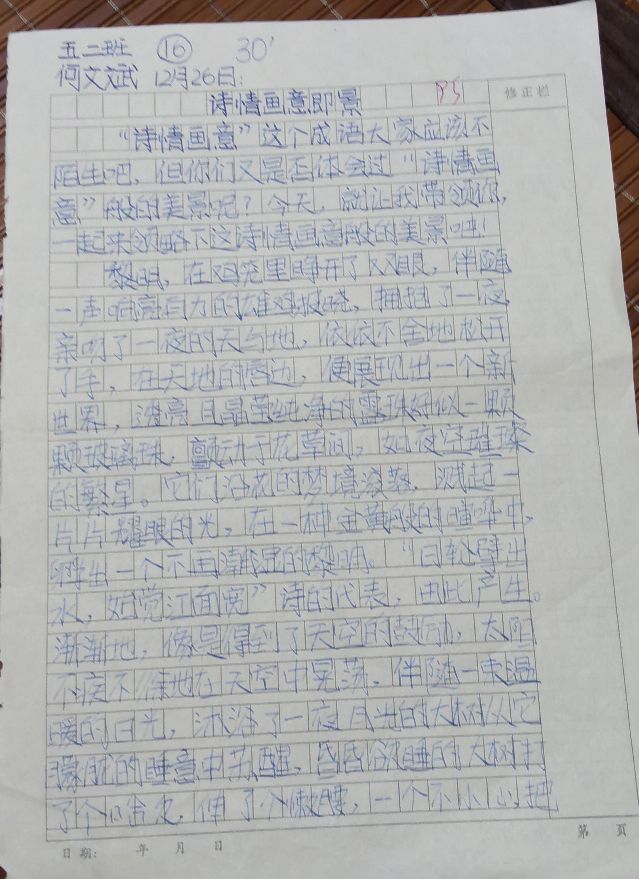 五二班 16 30'
何文斌 12月26日:
诗情画意即景 85
修正栏
“诗情画意”这个成语大家应该不
陌生吧,但你们又是否体会过“诗情画
意”般的美景呢?今天,就让我带领你,
一起来领略下这诗情画意般的美景吧!
黎明,在鸡笼里睁开了双眼,伴随
一声响亮有力的雄鸡报晓,拥抱了一夜
亲吻了一夜的天与地,依依不舍地松开
了手,在天地的唇边,便展现出一个新
世界,漂亮且晶莹纯净的露珠好似一颗
颗玻璃珠,颤动于花草间,如夜空璀璨
的繁星。它们沿花的梦境滚落,溅起一
片片耀眼的光,在一种金黄般的喧哗中,
孵出一个不再潮湿的黎明。“日轮擘出
水,始觉江面宽”诗的代表,由此产生。
渐渐地,像是得到了天空的鼓动,太阳
不疾不徐地在天空中晃荡。伴随一束温
暖的日光,沐浴了一夜月光的大树从它
朦胧的睡意中苏醒,昏昏欲睡的大树打
了个哈欠,伸了个懒腰,一个不小心把
日期: 年 月 日 第 页